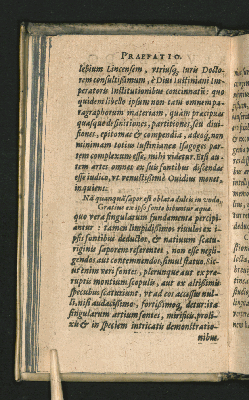 PRAEFATIO.
lepium Lincensem, vtriusq; iuris Docto-
rem consultissimum, è Diui Iustiniani Im-
peratoris institutionibus concinnatū: quo
quidem libello ipsum non tam omnem pa-
ragraphorum materiam, quàm praecipuas
quasque definitiones, partitiones, seu diui-
siones, epitomas & compendia, adeoq́; non
minimam totius iustinianeae Isagoges par-
tem complexum esse, mihi videtur. Etsi au-
tem artes omnes ex suis fontibus discendas
esse iudico, vt venustissimè Ouidius monet,
inquiens:
Nā quanquā sapor est oblata dulcis in vnda,
Gratius ex ipso fonte bibuntur aquae.
quo vera singularum fundamenta percipi-
antur: tamen limpidissimos riuulos ex i-
psis fontibus deductos, & natiuum scatu-
riginis saporem referentes, non esse negli-
gendos aut contemnendos, simul statuo. Sic-
ut enim veri fontes, plerunque aut ex prae-
ruptis montium scopulis, aut ex altissimis
specubus scaturiunt, vt ad eos accessus nul-
li, nisi audacissimo, fortissimoq; detur: ita
singularum artium fontes, mirificis, proli-
xis & in speciem intricatis demonstratio-
nibus